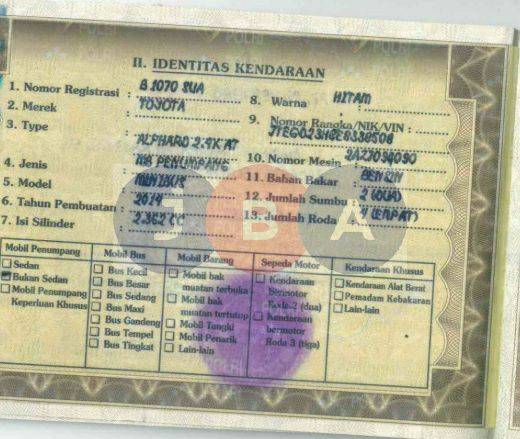 II. IDENTITAS KENDARAAN
1. Nomor Registrasi : B 1070 SUA
2. Merek : TOYOTA
3. Type : ALPHARD 2.4
4. Jenis : MB PENUMPANG
5. Model : MINIBUS
6. Tahun Pembuatan : 2014
7. Isi Silinder : 2.362 CC
8. Warna : HITAM
9. Nomor Rangka/NIK/VIN :
10. Nomor Mesin :
11. Bahan Bakar : BENSIN
12. Jumlah Sumbu : 2 (DUA)
13. Jumlah Roda : 4 (EMPAT)
JBA
Mobil Penumpang
Sedan
Bukan Sedan
Mobil Penumpang
Keperluan Khusus
Mobil Bus
Bus Kecil
Bus Besar
Bus Sedang
Bus Maxi
Bus Gandeng
Bus Tempel
Bus Tingkat
Mobil Barang
Mobil bak
muatan terbuka
Mobil bak
muatan tertutup
Mobil Tangki
Mobil Penarik
Lain-lain
Sepeda Motor
Kendaraan
Bermotor
Roda 2 (dua)
Kendaraan
bermotor
Roda 3 (tiga)
Kendaraan Khusus
Kendaraan Alat Berat
Pemadam Kebakaran
Lain-lain